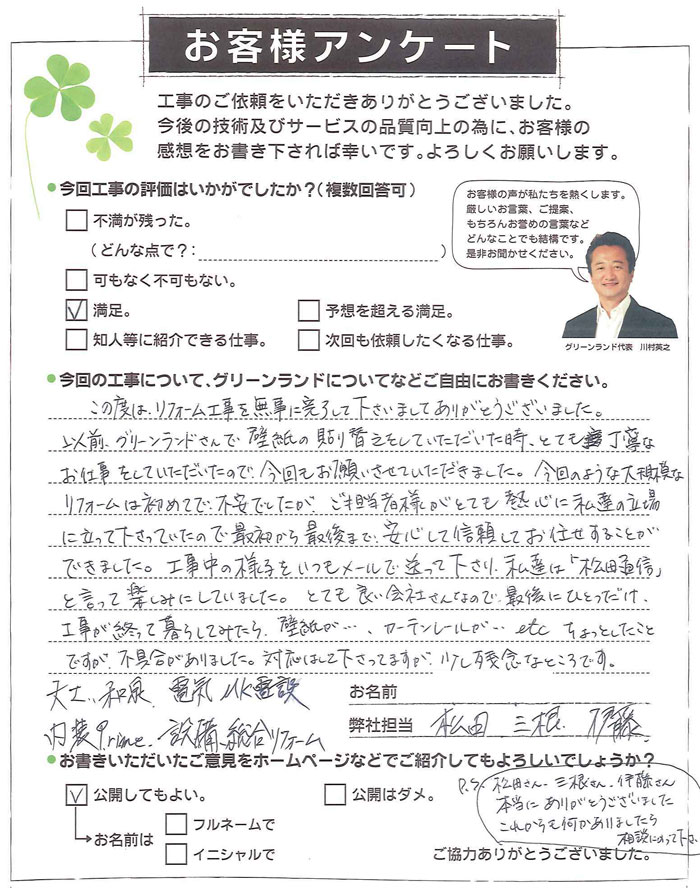 お客様アンケート
工事のご依頼をいただきありがとうございました。
今後の技術及びサービスの品質向上の為に、お客様の
感想をお書き下されば幸いです。よろしくお願いします。
今回工事の評価はいかがでしたか？（複数回答可）
不満が残った。
（どんな点で？：）
可もなく不可もない。
満足。
予想を超える満足。
知人等に紹介できる仕事。
次回も依頼したくなる仕事。
お客様の声が私たちを熱くします。
厳しいお言葉、ご提案、
もちろんお誉めの言葉など
どんなことでも結構です。
是非お聞かせください。
グリーンランド代表 川村英之
今回の工事について、グリーンランドについてなどご自由にお書きください。
この度は、リフォーム工事を無事に完了して下さいましてありがとうございました。
以前、グリーンランドさんで壁紙の貼り替えをしていただいた時、とても丁寧な
お仕事をしていただいたので、今回もお願いさせていただきました。今回のような大規模な
リフォームは初めてで、不安でしたが、ご担当者様がとても熱心に私達の立場
に立って下さっていたので最初から最後まで、安心して信頼してお任せすることが
できました。工事中の様子をいつもメールで送って下さり、私達は「松田通信」
と言って楽しみにしていました。とても良い会社さんなので、最後にひとつだけ、
工事が終って暮らしてみたら、壁紙が…、カーテンレールが… etc ちょっとしたこと
ですが、不具合がありました。対応はして下さってますが、少し残念なところです。
大工、和泉 電気 MK電設
内装Prime、設備、総合リフォーム
お名前
弊社担当 松田 三根 伊藤
お書きいただいたご意見をホームページなどでご紹介してもよろしいでしょうか？
公開してもよい。
公開はダメ。
お名前は
フルネームで
イニシャルで
P.S. 松田さん、三根さん、伊藤さん
本当にありがとうございました
これからも何かありましたら
相談にのって下さい
ご協力ありがとうございました。